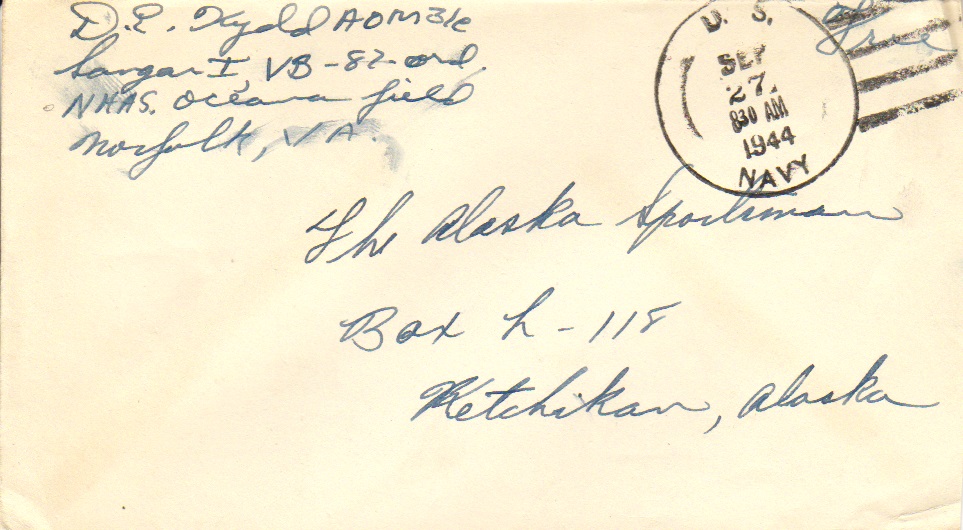 D. E. Kydd AOM3/c
Hangar I, VB-82-ord.
NAAS. Oceana field
Norfolk, VA.
Free
U. S.
SEP
27
830 AM
1944
NAVY
The Alaska Sportsman
Box L-118
Ketchikan, Alaska